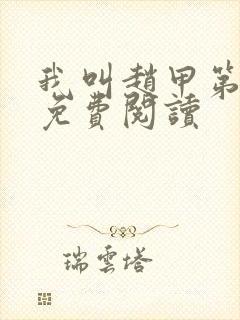 我叫趙甲第
免費閱讀
瑞雲塔